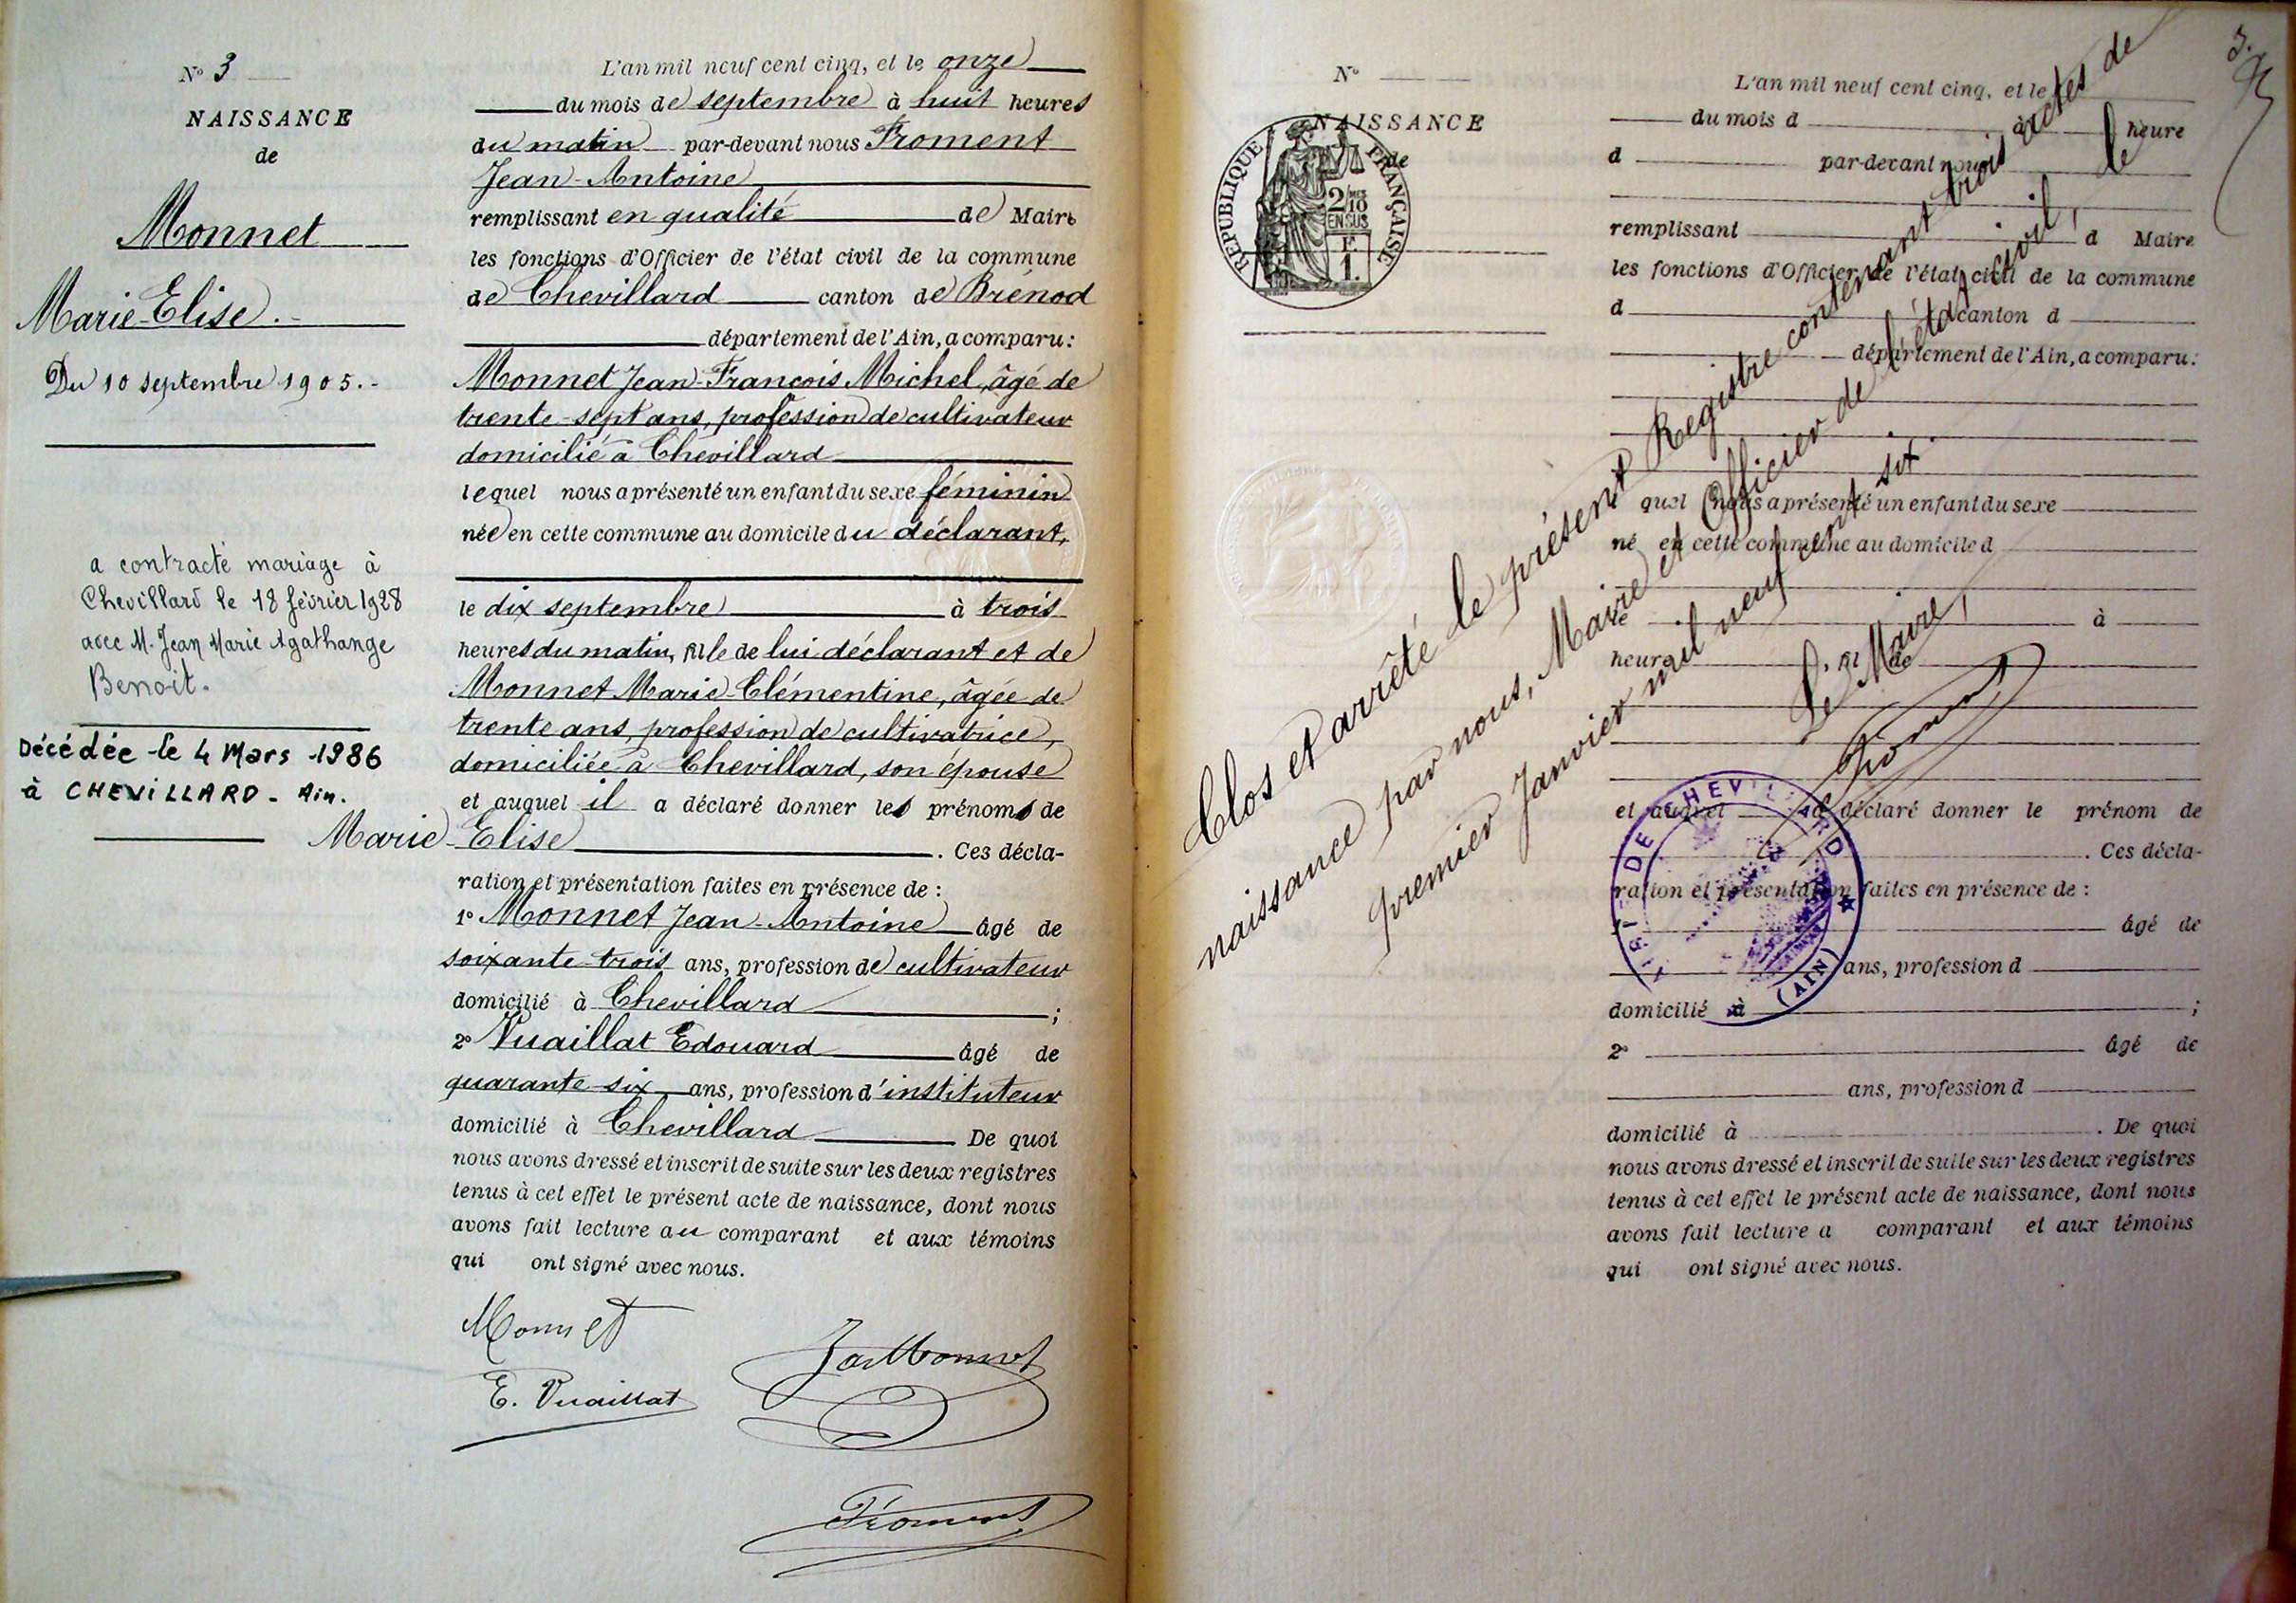 N° 3
NAISSANCE
de
Monnet
Marie-Elise.
Du 10 septembre 1905.-
a contracté mariage à
Chevillard le 18 février 1928
avec M. Jean Marie Agathange
Benoit.
Décédée le 4 Mars 1986
à CHEVILLARD - Ain.
L'an mil neuf cent cinq, et le onze
du mois de septembre à huit heures
du matin par-devant nous Froment
Jean-Antoine
remplissant en qualité de Maire
les fonctions d'Officier de l'état civil de la commune
de Chevillard canton de Brénod
département de l'Ain, a comparu:
Monnet Jean-François Michel, âgé de
trente-sept ans, profession de cultivateur
domicilié à Chevillard
lequel nous a présenté un enfant du sexe féminin
née en cette commune au domicile du déclarant,
le dix septembre à trois
heures du matin, fille de lui déclarant et de
Monnet Marie-Clémentine, âgée de
trente ans, profession de cultivatrice,
domiciliée à Chevillard, son épouse
et auquel il a déclaré donner les prénoms de
Marie-Elise . Ces décla-
ration et présentation faites en présence de :
1° Monnet Jean-Antoine âgé de
soixante-trois ans, profession de cultivateur
domicilié à Chevillard ;
2° Vuaillat Edouard âgé de
quarante-six ans, profession d'instituteur
domicilié à Chevillard De quoi
nous avons dressé et inscrit de suite sur les deux registres
tenus à cet effet le présent acte de naissance, dont nous
avons fait lecture au comparant et aux témoins
qui ont signé avec nous.
Monnet
JaMonnet
E. Vuaillat
Froment
N°
NAISSANCE
de
RÉPUBLIQUE FRANÇAISE
2/10
EN SUS
F.
1.
L'an mil neuf cent cinq, et le
du mois d à heure
d par-devant nous
remplissant d Maire
les fonctions d'Officier de l'état civil de la commune
d canton d
département de l'Ain, a comparu:
quel nous a présenté un enfant du sexe
né en cette commune au domicile d
le à
heure fi de
et auquel a déclaré donner le prénom de
. Ces décla-
ration et présentation faites en présence de :
âgé de
ans, profession d
domicilié à ;
2° âgé de
ans, profession d
domicilié à . De quoi
nous avons dressé et inscrit de suite sur les deux registres
tenus à cet effet le présent acte de naissance, dont nous
avons fait lecture a comparant et aux témoins
qui ont signé avec nous.
Clos et arrêté le présent Registre contenant trois actes de
naissance par nous, Maire et Officier de l'état civil, le
premier Janvier mil neuf cent six.
Le Maire,
Froment
DE CHEVILLARD
(AIN)